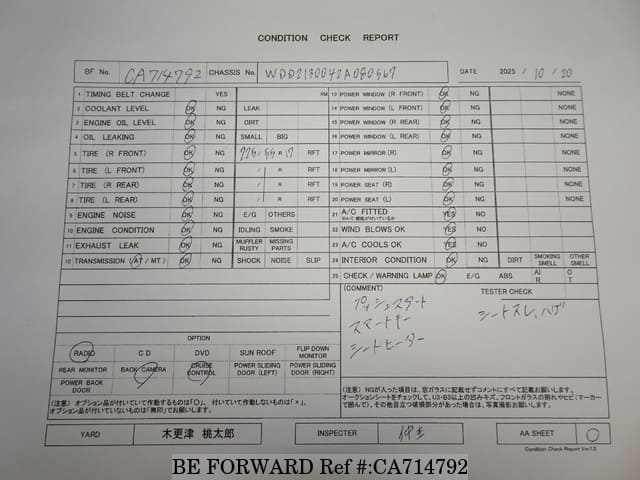 CONDITION CHECK REPORT
BF No. CA714792 CHASSIS No. WDD2130042A080567 DATE 2025 / 10 / 20
1 TIMING BELT CHANGE YES KM 13 POWER WINDOW (R FRONT) OK NG NONE
2 COOLANT LEVEL OK NG LEAK 14 POWER WINDOW (L FRONT) OK NG NONE
3 ENGINE OIL LEVEL OK NG DIRT 15 POWER WINDOW (R REAR) OK NG NONE
4 OIL LEAKING OK NG SMALL BIG 16 POWER WINDOW (L REAR) OK NG NONE
5 TIRE (R FRONT) OK NG 225/55 R 17 RFT 17 POWER MIRROR (R) OK NG NONE
6 TIRE (L FRONT) OK NG / R RFT 18 POWER MIRROR (L) OK NG NONE
7 TIRE (R REAR) OK NG / R RFT 19 POWER SEAT (R) OK NG NONE
8 TIRE (L REAR) OK NG / R RFT 20 POWER SEAT (L) OK NG NONE
9 ENGINE NOISE OK NG E/G OTHERS 21 A/C FITTED YES NO
10 ENGINE CONDITION OK NG IDLING SMOKE 22 WIND BLOWS OK YES NO
11 EXHAUST LEAK OK NG MUFFLER RUSTY MISSING PARTS 23 A/C COOLS OK YES NO
12 TRANSMISSION (AT / MT) OK NG SHOCK NOISE SLIP 24 INTERIOR CONDITION OK NG DIRT SMOKING SMELL OTHER SMELL
25 CHECK / WARNING LAMP OK E/G ABS AIR OT
(COMMENT) TESTER CHECK
プッシュスタート
スマートキー
シートヒーター
シートスレ、ハゲ
OPTION
RADIO CD DVD SUN ROOF FLIP DOWN MONITOR
REAR MONITOR BACK CAMERA CRUISE CONTROL POWER SLIDING DOOR (LEFT) POWER SLIDING DOOR (RIGHT)
POWER BACK DOOR
(注意) オプション品が付いていて作動するものは「○」、付いていて作動しないものは「×」、
オプション品が付いていないものは「無印」でお願いします。
(注意) NGが入った項目は、窓ガラスに記載せずコメントにすべて記載お願いします。
オークションシートをチェックして、U3・B3以上の凹みキズ、フロントガラスの割れやヒビ(マーカー
で囲んで)、その他目立つ破損部分があった場合は、写真撮影お願いします。
YARD 木更津 桃太郎 INSPECTER AA SHEET ○
Condition Check Report Ver7.0
BE FORWARD Ref #:CA714792